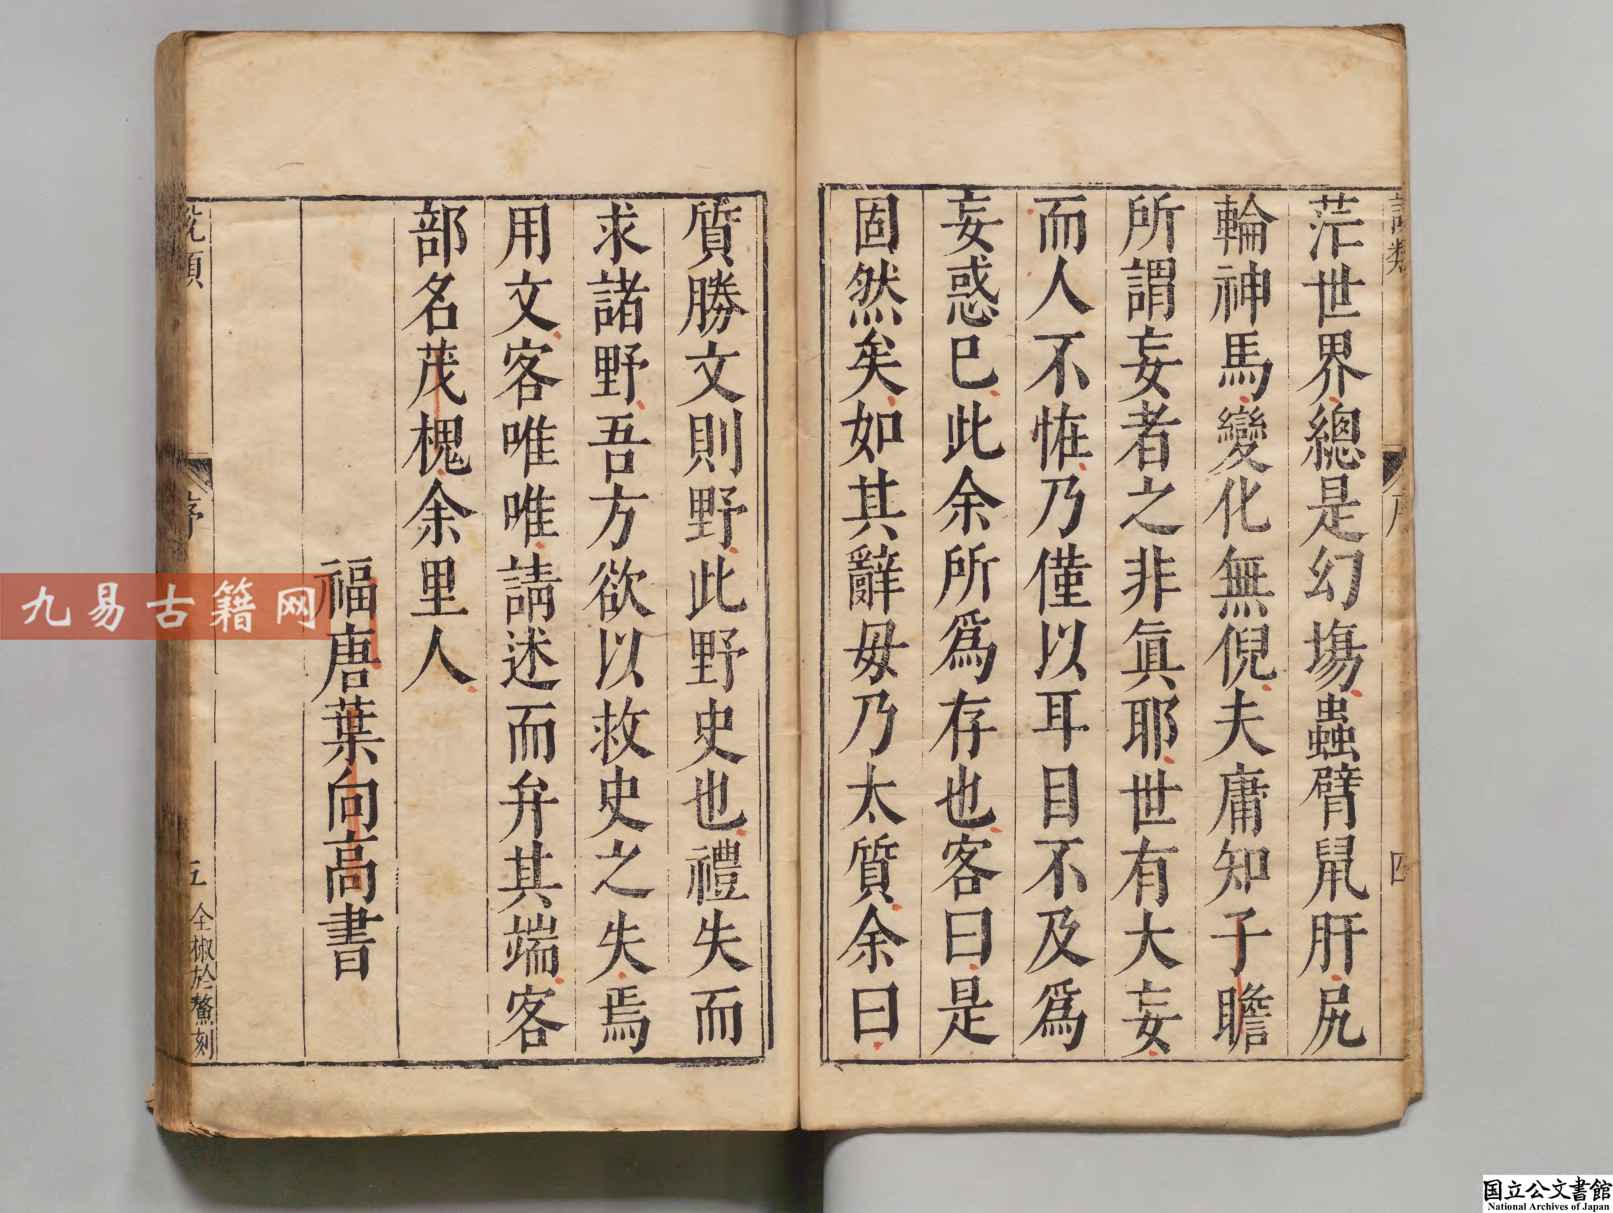 茫世界總是幻塲蟲臂鼠肝尻
輪神馬變化無倪夫庸知子瞻
所謂妄者之非眞耶世有大妄
而人不恠乃僅以耳目不及爲
妄惑已此余所爲存也客曰是
固然矣如其辭毋乃太質余曰
質勝文則野此野史也禮失而
求諸野吾方欲以救史之失焉
用文客唯唯請述而弁其端客
部名茂槐余里人
福唐葉向高書
序
五
仝椒於鰲刻
九易古籍网
国立公文書館
National Archives of Japan